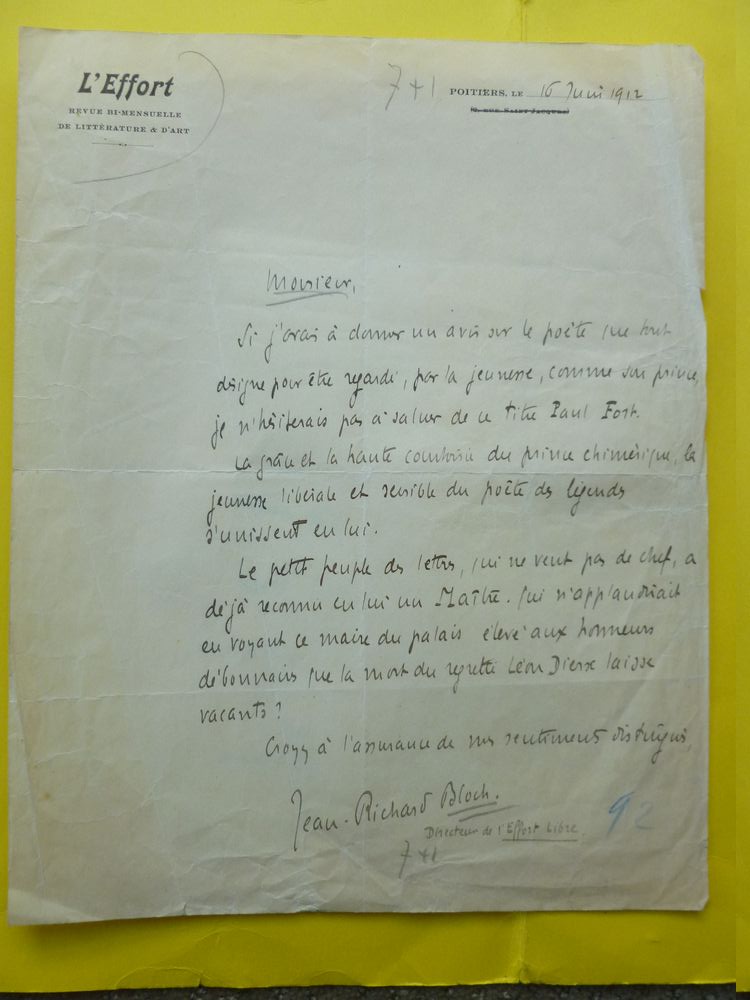 L'Effort
REVUE BI-MENSUELLE
DE LITTÉRATURE & D'ART
7+1
POITIERS, LE 16 Juin 1912
Monsieur,
Si j'avais à donner un avis sur le poète que tout
désigne pour être regardé, par la jeunesse, comme son prince,
je n'hésiterais pas à saluer de ce titre Paul Fort.
La grâce et la haute courtoisie du prince chimérique, la
jeunesse libérale et sensible du poète des légendes
s'unissent en lui.
Le petit peuple des lettres, qui ne veut pas de chef, a
déjà reconnu en lui un Maître. Qui n'applaudirait
en voyant ce maire du palais élevé aux honneurs
débonnaires que la mort du regretté Léon Dierx laisse
vacants ?
Croyez à l'assurance de mes sentiments distingués,
Jean-Richard Bloch.
Directeur de l'Effort Libre.
92
7+1